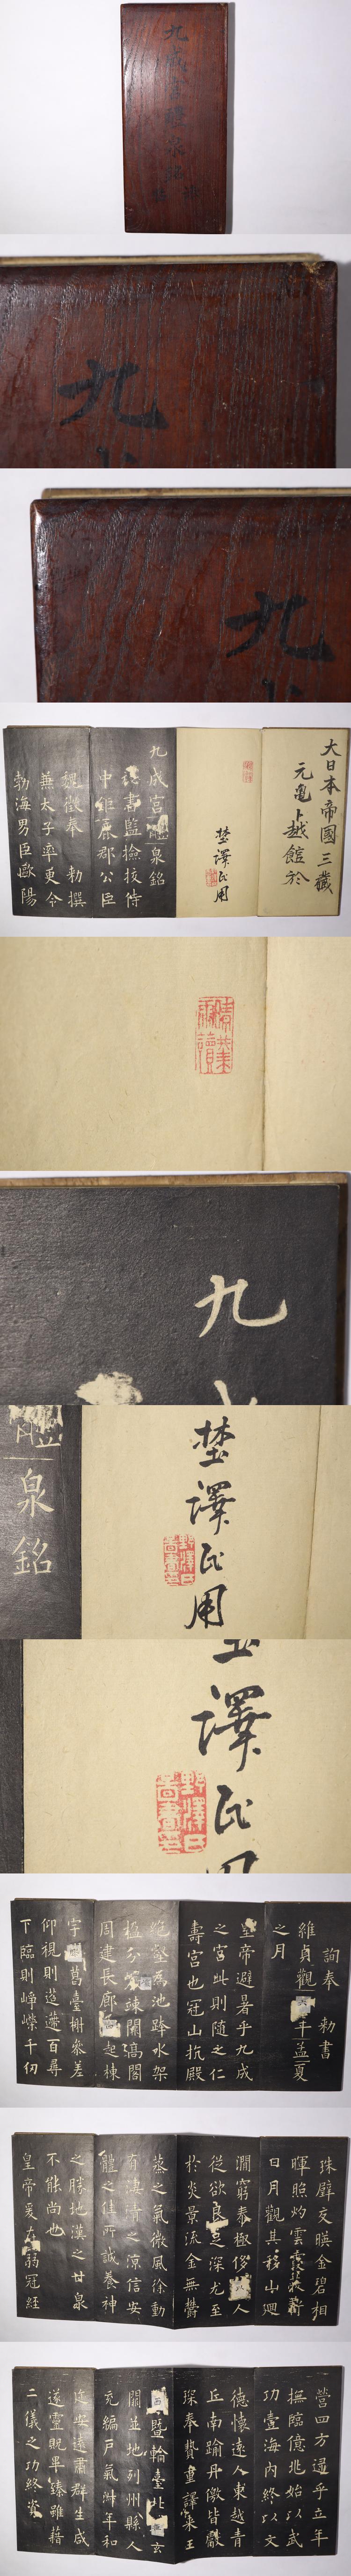 九成宮醴泉銘
九
九
大日本帝國三藏
元亀卜越館於
埜澤氏用
九成宮醴泉銘
秘書監撿挍侍
中鉅鹿郡公臣
魏徵奉 勅撰
兼太子率更令
勃海男臣歐陽
九
泉銘
埜澤氏用
野澤氏
澤氏
野澤氏
詢奉 勅書
維貞觀年孟夏
之月
皇帝避暑乎九成
之宮此則隨之仁
壽宮也冠山抗殿
絶壑為池跨水架
楹分竦闕高閣
周建長廊起棟
宇葛臺榭參差
仰視則迢遰百尋
下臨則崢嶸千仞
珠璧交暎金碧相
暉照灼雲霞蔽虧
日月觀其移山廻
澗窮泰極侈人
從欲良足深尤至
於炎景流金無欝
蒸之氣微風徐動
有淒清之涼信安
體之佳所誠養神
之勝地漢之甘泉
不能尚也
皇帝爰在弱冠經
營四方逮乎立年
撫臨億兆始以武
功壹海內終以文
德懷遠人東越青
丘南踰丹儌皆獻
琛奉贄重譯來王
西暨輪臺北玄
闕並地列州縣人
充編戶氣淑年和
迩安遠肅群生咸
遂靈貺畢臻雖藉
二儀之功終資